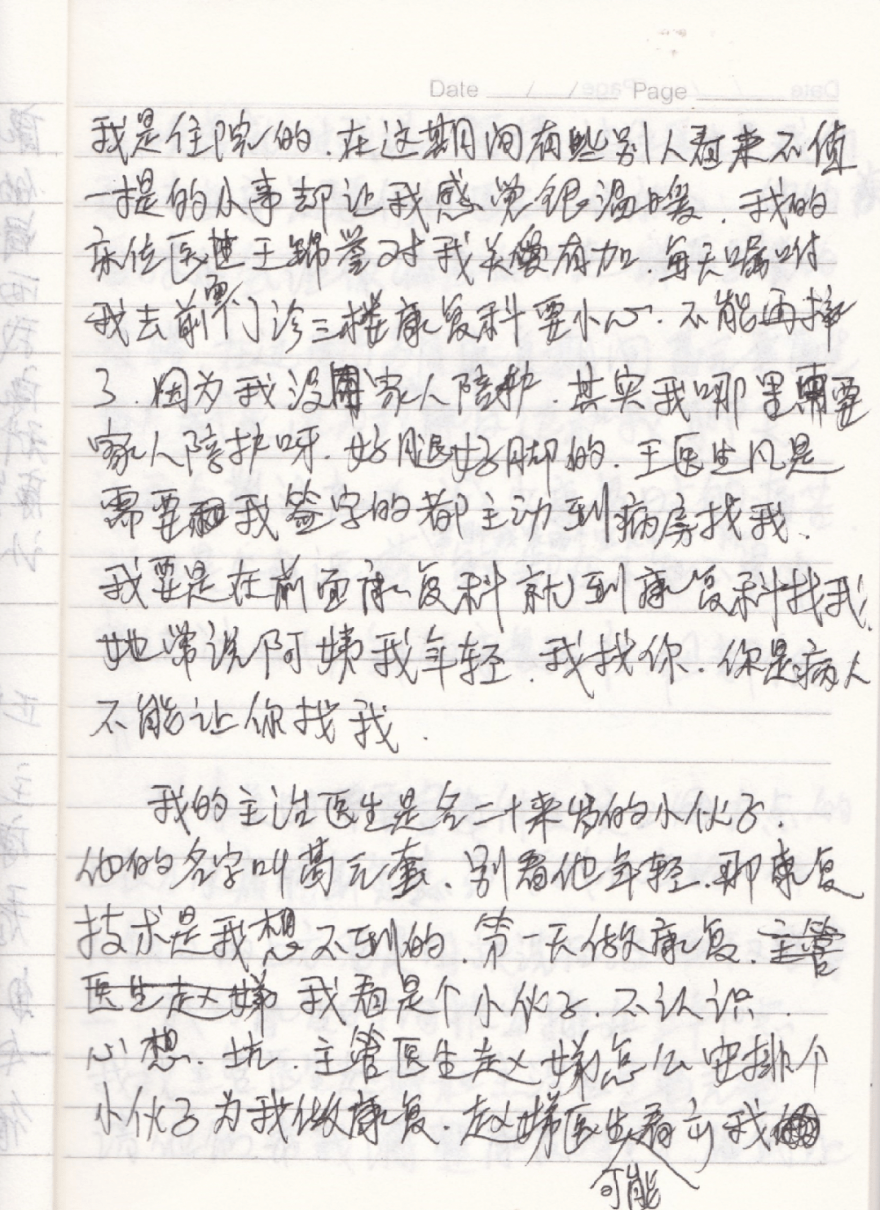 Date / / Page
我是住院的.在这期间有些别人看来不值
一提的小事却让我感觉很温暖.我的
床位医生王锦誉对我关爱有加.每天嘱咐
我去前面门诊三楼康复科要小心.不能再摔
了.因为我没有家人陪护.其实我哪里需要
家人陪护呀.好腿好脚的.王医生凡是
需要我签字的都主动到病房找我.
我要是在前面康复科就到康复科找我.
她常说阿姨我年轻.我找你.你是病人
不能让你找我.
我的主治医生是名二十来岁的小伙子.
他的名字叫葛元套.别看他年轻.那康复
技术是我想不到的.第一天做康复.主管
医生赵娣我看是个小伙子.不认识.
心想.坑.主管医生赵娣怎么安排个
小伙子为我做康复.赵娣医生看出我
可能